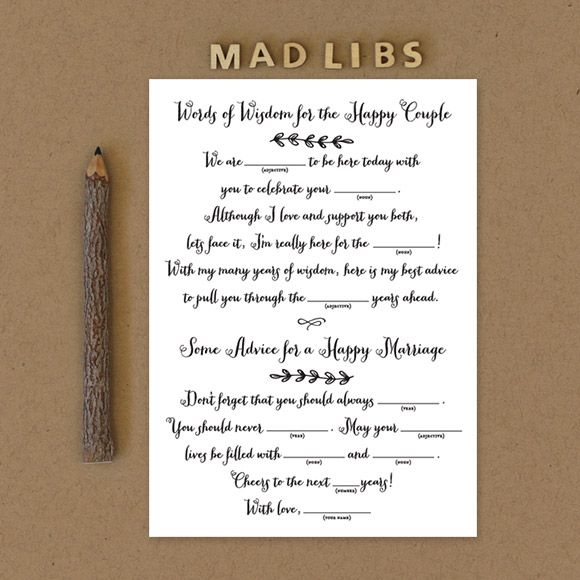 MAD LIBS
Words of Wisdom for the Happy Couple
We are __________ to be here today with
(ADJECTIVE)
you to celebrate your __________ .
(NOUN)
Although I love and support you both,
lets face it, I'm really here for the __________ !
(NOUN)
With my many years of wisdom, here is my best advice
to pull you through the __________ years ahead.
(ADJECTIVE)
Some Advice for a Happy Marriage
Don't forget that you should always __________ .
(VERB)
You should never __________ . May your __________
(VERB) (ADJECTIVE)
lives be filled with __________ and __________ .
(NOUN) (NOUN)
Cheers to the next ____ years!
(NUMBER)
With love, __________
(YOUR NAME)